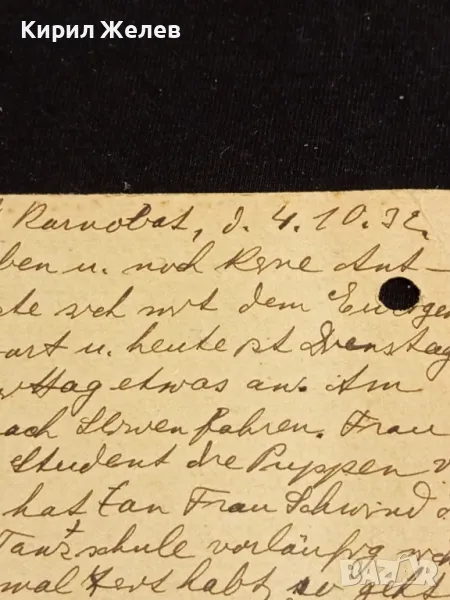 Кирил Желев
Karnobat, d. 4.10.32.
ben u. noch keine Ant-
te sich mit dem Ewigen
art u. heute ist Dienstag
Hag etwas an. Am
ach Sliwen fahren. Frau
Student die Puppen
hat Frau Schwind
Tanzschule vorläufig
mal Zeit habt, so geht
BAZAR